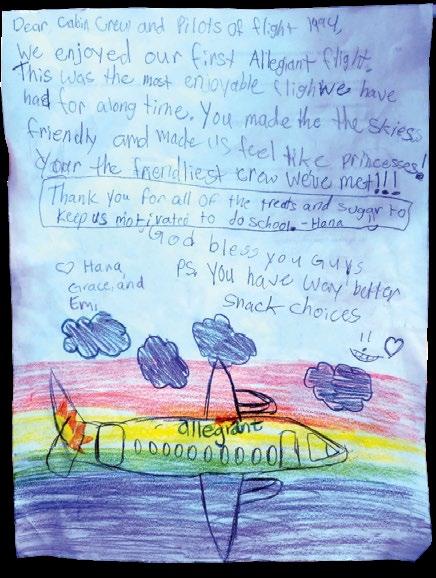 Dear Cabin Crew and Pilots of flight 1994,
We enjoyed our first Allegiant flight.
This was the most enjoyable flighwe have
had for along time. You made the the skiess
friendly and made us feel like princesses!
Your the friendliest crew we've met!!!
Thank you for all of the treats and suggr to
keep us motivated to do school. -Hana
God bless you Guys
♡ Hana,
Grace, and
Emi
PS, you have way better
snack choices
allegiant